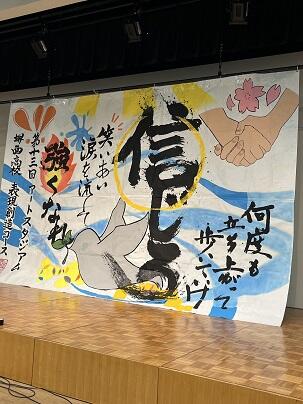 何度も
立ち上がって
歩いてけ
信じろ
笑いあい
涙を流して
強くなれ
第十三回 アートスタジアム
堺西高校 表現創造コース